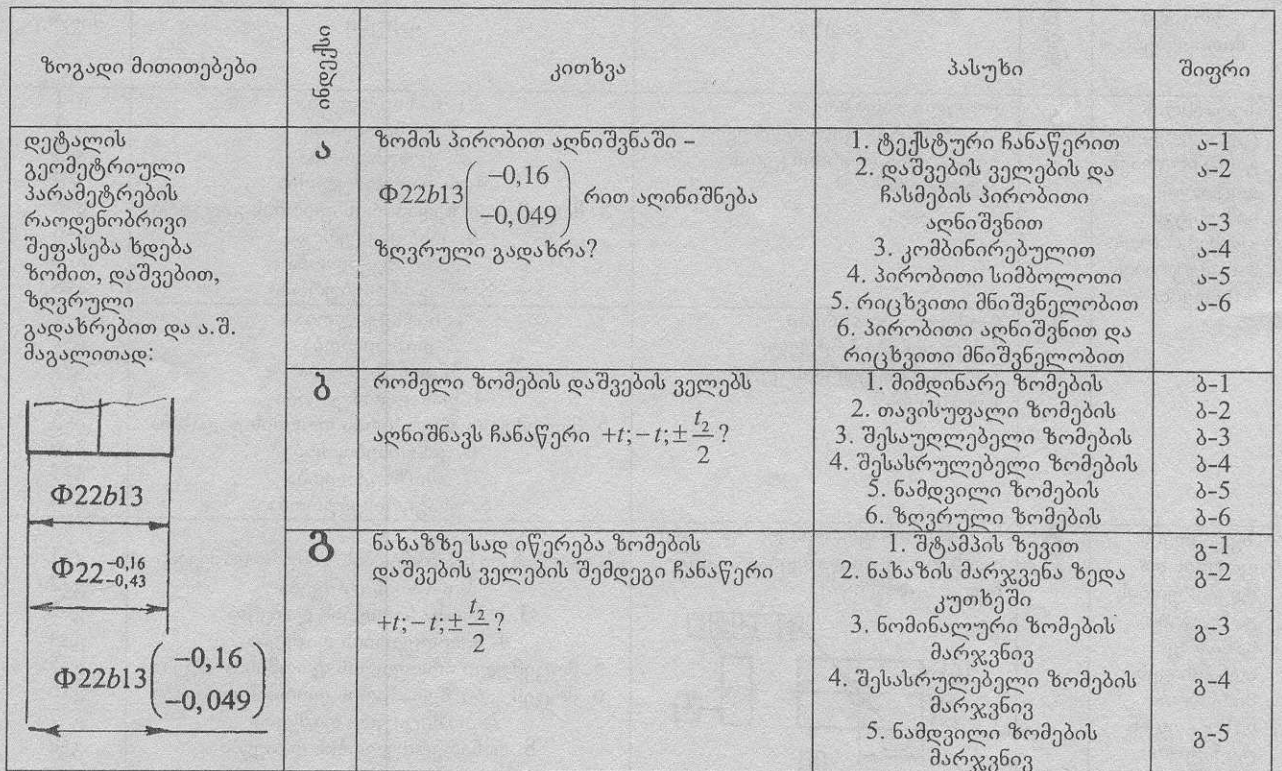 ზოგადი მითითებები
ინდექსი
კითხვა
პასუხი
შიფრი
დეტალის
გეომეტრიული
პარამეტრების
რაოდენობრივი
შეფასება ხდება
ზომით, დაშვებით,
ზღვრული
გადახრებით და ა.შ.
მაგალითად:
Φ22b13
Φ22 −0,16 −0,43
Φ22b13(−0,16 −0,049)
ა
ზომის პირობით აღნიშვნაში –
Φ22b13(−0,16 −0,049) რით აღინიშნება
ზღვრული გადახრა?
1. ტექსტური ჩანაწერით
2. დაშვების ველების და
ჩასმების პირობითი
აღნიშვნით
3. კომბინირებულით
4. პირობითი სიმბოლოთი
5. რიცხვითი მნიშვნელობით
6. პირობითი აღნიშვნით და
რიცხვითი მნიშვნელობით
ა-1
ა-2
ა-3
ა-4
ა-5
ა-6
ბ
რომელი ზომების დაშვების ველებს
აღნიშნავს ჩანაწერი +t;−t;± t₂/2 ?
1. მიმდინარე ზომების
2. თავისუფალი ზომების
3. შესაუღლებელი ზომების
4. შესასრულებელი ზომების
5. ნამდვილი ზომების
6. ზღვრული ზომების
ბ-1
ბ-2
ბ-3
ბ-4
ბ-5
ბ-6
გ
ნახაზზე სად იწერება ზომების
დაშვების ველების შემდეგი ჩანაწერი
+t;−t;± t₂/2 ?
1. შტამპის ზევით
2. ნახაზის მარჯვენა ზედა
კუთხეში
3. ნომინალური ზომების
მარჯვნივ
4. შესასრულებელი ზომების
მარჯვნივ
5. ნამდვილი ზომების
მარჯვნივ
გ-1
გ-2
გ-3
გ-4
გ-5